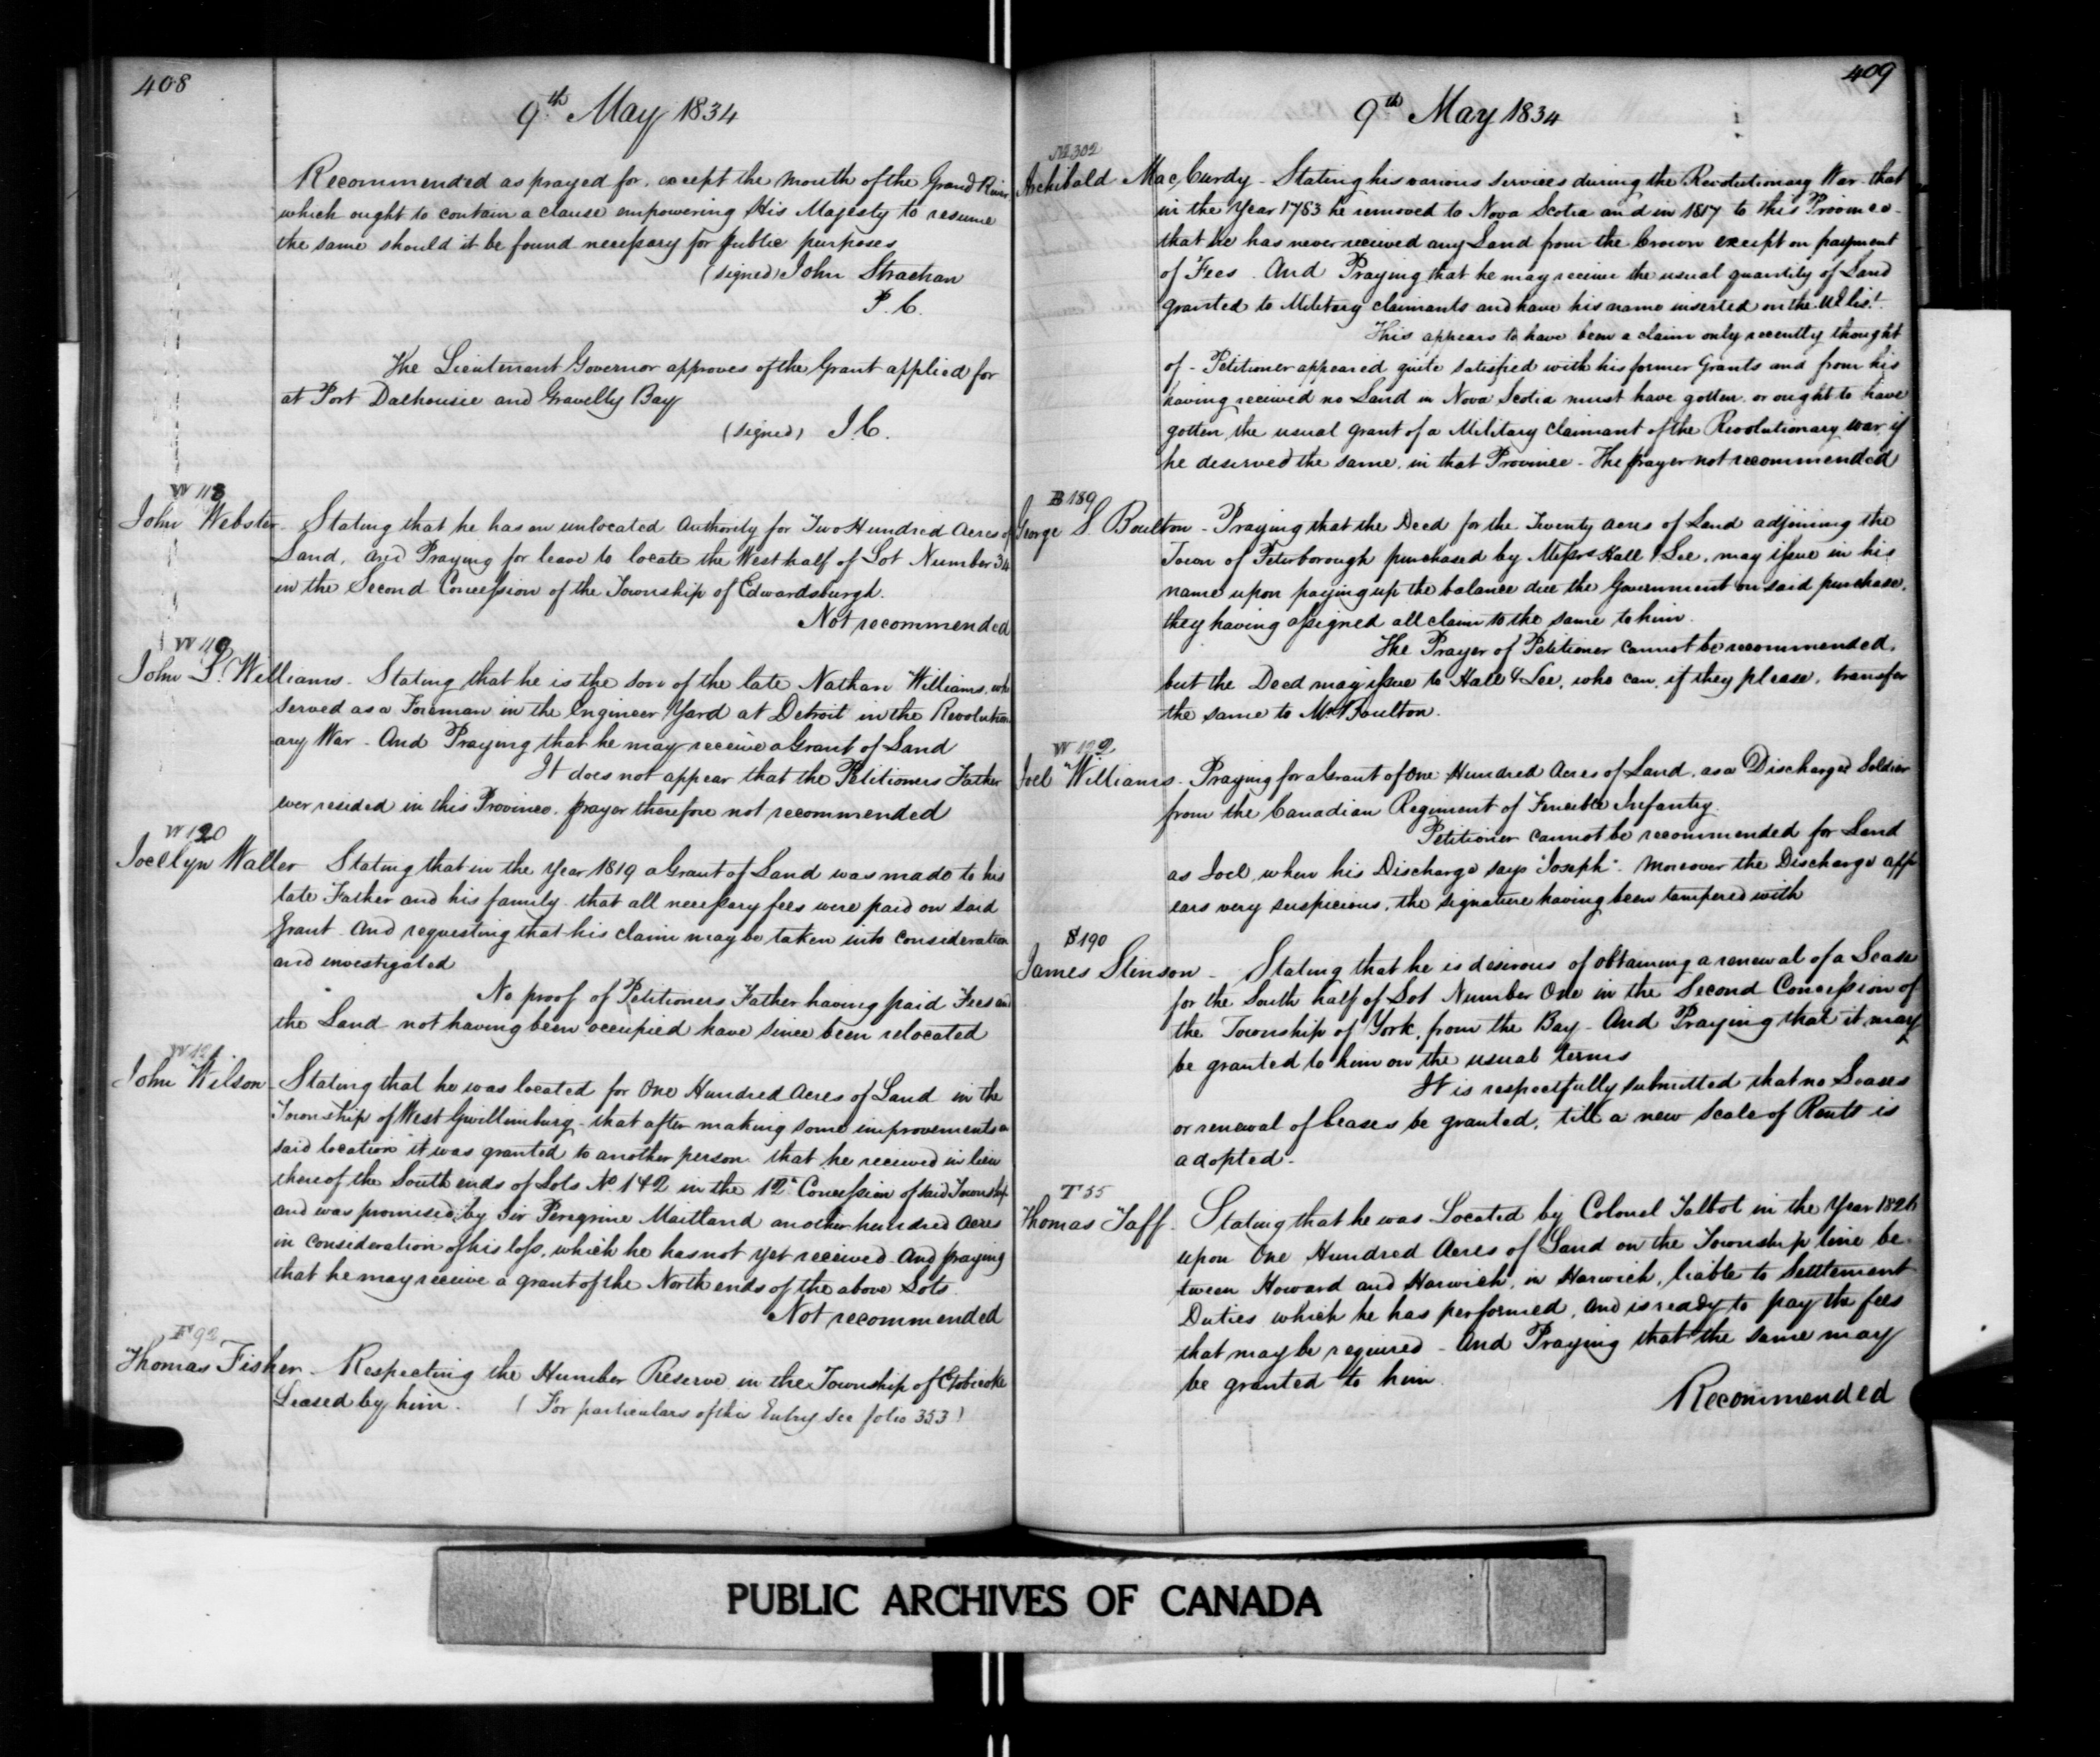 408
9th May 1834
Recommended as prayed for, except the mouth of the Grand River
which ought to contain a clause empowering His Majesty to resume
the same should it be found necessary for public purposes
(signed) John Strachan
P. C.
The Lieutenant Governor approves of the Grant applied for
at Port Dalhousie and Gravelly Bay
(signed) J. C.
W 118
John Webster - Stating that he has an unlocated Authority for Two Hundred Acres of
Land, And Praying for leave to locate the West half of Lot Number 34
in the Second Concession of the Township of Edwardsburgh.
Not recommended
W 119
John S. Williams - Stating that he is the son of the late Nathan Williams, who
served as a Foreman in the Engineer Yard at Detroit in the Revolution
ary War - And Praying that he may receive a Grant of Land
It does not appear that the Petitioners Father
ever resided in this Province. prayer therefore not recommended
W 120
Jocelyn Walter Stating that in the year 1819 a Grant of Land was made to his
late Father and his family - that all necessary fees were paid on said
Grant - And requesting that his claim may be taken into consideration
and investigated
No proof of Petitioners Father having paid Fees and
the Land not having been occupied have since been relocated
W 121
John Wilson - Stating that he was located for One Hundred Acres of Land in the
Township of West Gwillimburg - that after making some improvements on
said location it was granted to another person. that he received in lieu
thereof the South ends of Lots No 1 & 2 in the 12th Concession of said Township
and was promised by Sir Peregrine Maitland another hundred Acres
in consideration of his loss, which he has not yet received - And praying
that he may receive a grant of the North ends of the above Lots
Not recommended
F 92
Thomas Fisher - Respecting the Humber Reserve in the Township of Etobicoke
Leased by him. (For particulars of this Entry see folio 353)
409
9th May 1834
M 302
Archibald MacCurdy - Stating his various services during the Revolutionary War - that
in the Year 1783 he removed to Nova Scotia and in 1817 to this Province -
that he has never received any Land from the Crown except on payment
of Fees. And Praying that he may receive the usual quantity of Land
granted to Military claimants and have his name inserted on the UE list.
This appears to have been a claim only recently thought
of - Petitioner appeared quite satisfied with his former Grants and from his
having received no Land in Nova Scotia must have gotten, or ought to have
gotten the usual grant of a Military claimant of the Revolutionary war, if
he deserved the same, in that Province - The prayer not recommended
B 189
George S. Boulton - Praying that the Deed for the Twenty acres of Land adjoining the
Town of Peterborough purchased by Messrs Hall & Lee, may issue in his
name upon paying up the balance due the Government on said purchase,
they having assigned all claim to the same to him.
The Prayer of Petitioner cannot be recommended,
but the Deed may issue to Hall & Lee, who can, if they please, transfer
the same to Mr Boulton.
W 122
Joel Williams - Praying for a Grant of One Hundred Acres of Land, as a Discharged Soldier
from the Canadian Regiment of Fencible Infantry.
Petitioner cannot be recommended for Land
as Joel, when his Discharge says "Joseph". Moreover the Discharge app
ears very suspicious, the signature having been tampered with
S 190
James Stinson - Stating that he is desirous of obtaining a renewal of a Lease
for the South half of Lot Number One in the Second Concession of
the Township of York, from the Bay - And Praying that it may
be granted to him on the usual terms
It is respectfully submitted that no Leases
or renewal of Leases be granted, till a new Scale of Rents is
adopted -
T 55
Thomas Taff - Stating that he was Located by Colonel Talbot in the Year 1826
upon One Hundred Acres of Land on the Township line be-
tween Howard and Harwich, in Harwich, liable to Settlement
Duties which he has performed, and is ready to pay the fees
that may be required - And Praying that the same may
be granted to him.
Recommended
PUBLIC ARCHIVES OF CANADA